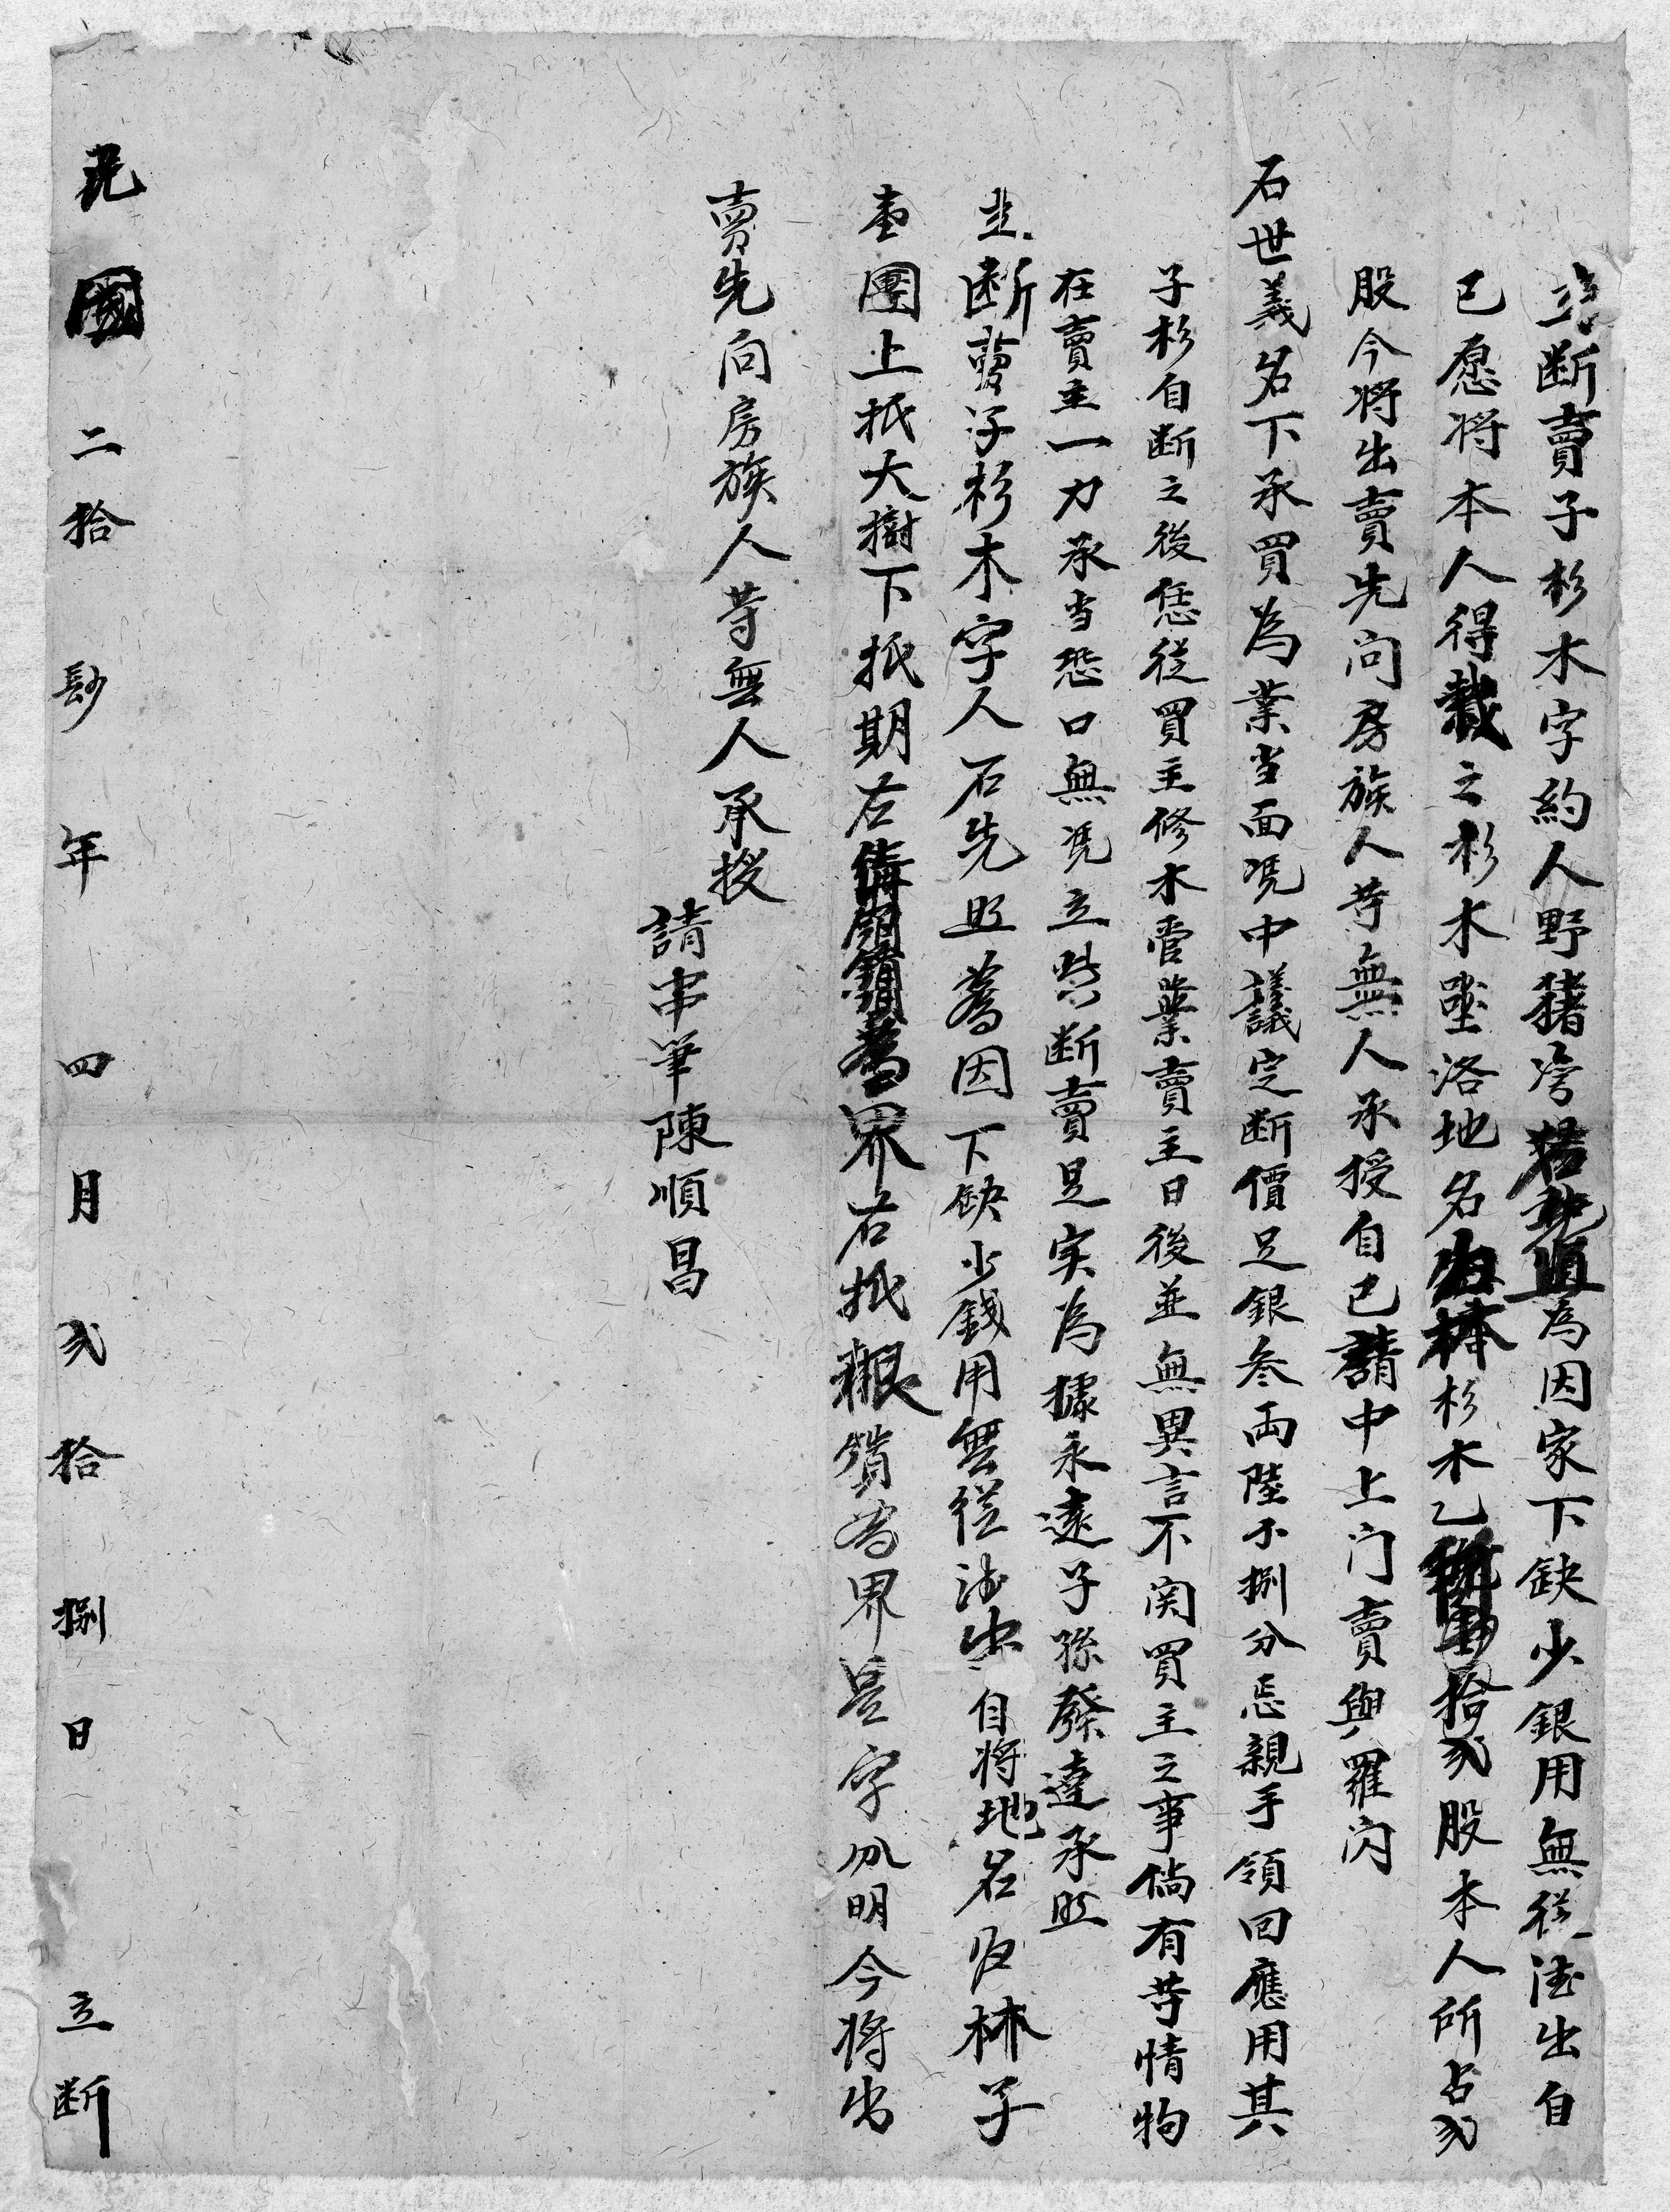 立断賣子杉木字約人野豬塆為因家下缺少銀用無從法出自
己愿将本人得栽之杉木坐洛地名杉木乙拾弍股本人所占弍
股今将出賣先问房族人等無人承授自己請中上门賣與羅闪
石世義名下承買為業当面凭中議定断價足銀叁両陸卜捌分忘親手領回應用其
子杉自断之後恁從買主修木管業賣主日後並無異言不関買主之事倘有等情物
在賣主一力承当恐口無凭立此断賣是实為據永遠子孫發達承照
立断賣子杉木字人石先照為因下缺少錢用無從法出自将地名得林子
壹團上抵大樹下抵期左界右抵嶺為界是字分明今将出
賣先问房族人等無人承授
請中筆陳順昌
民國二拾年四月弍拾捌日立断